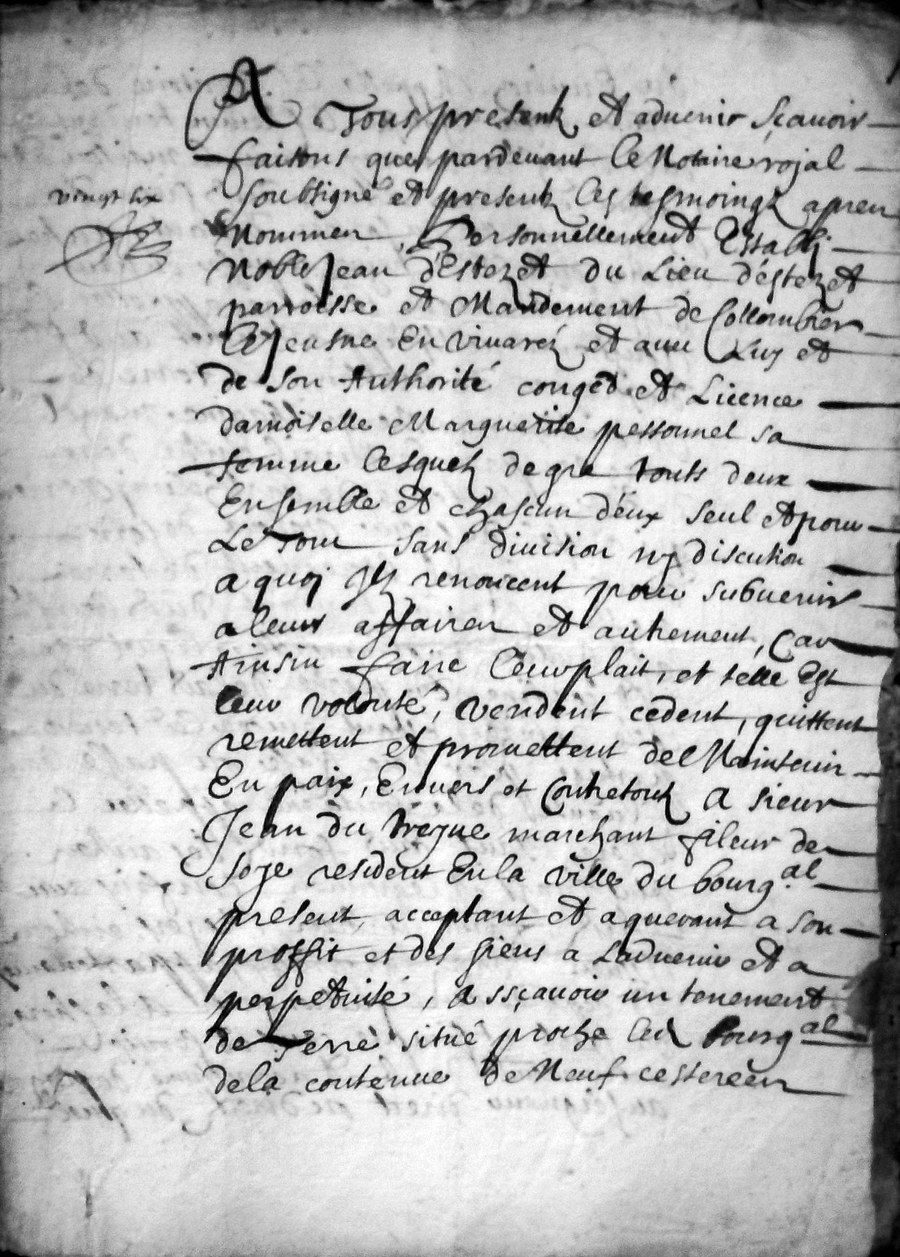 A Tous presentz et aduenir sçauoir
faisons que pardeuant le Notaire rojal
vingt six
soubsigné et presentz les tesmoingz apren
Nommen, Personnellement Establj
Noble Jean d'Estezet du Lieu d'éstezet
parroisse et Mandement de Collombier
le Jeusne En Viuaréz et auec Luy et
de son Authorité congéd et Licence
damoiselle Marguerite pessonnel sa
femme lesquelz de gre touts deux
Ensemble et chascun d'éux seul et pour
Le tout sans diuision nj discution
a quoj Jlz renoncent pour subuenir
a leurs affairen et autrement, Car
Ainsin faire leur plait, et telle Est
leur volonté, Vendent cedent, quittent
remettent et promettent de Maintenir
En paix, Enuers et Contre toutz A sieur
Jean du treyue marchant fileur de
soye resident En la ville du bourg al
present, acceptant et aquerant a son
proffit et des siens a Laduenir et a
perpétuité, A ssçauoir un tenement
de Terre situé proche led bourg al
de la contenue de Neuf cestereen